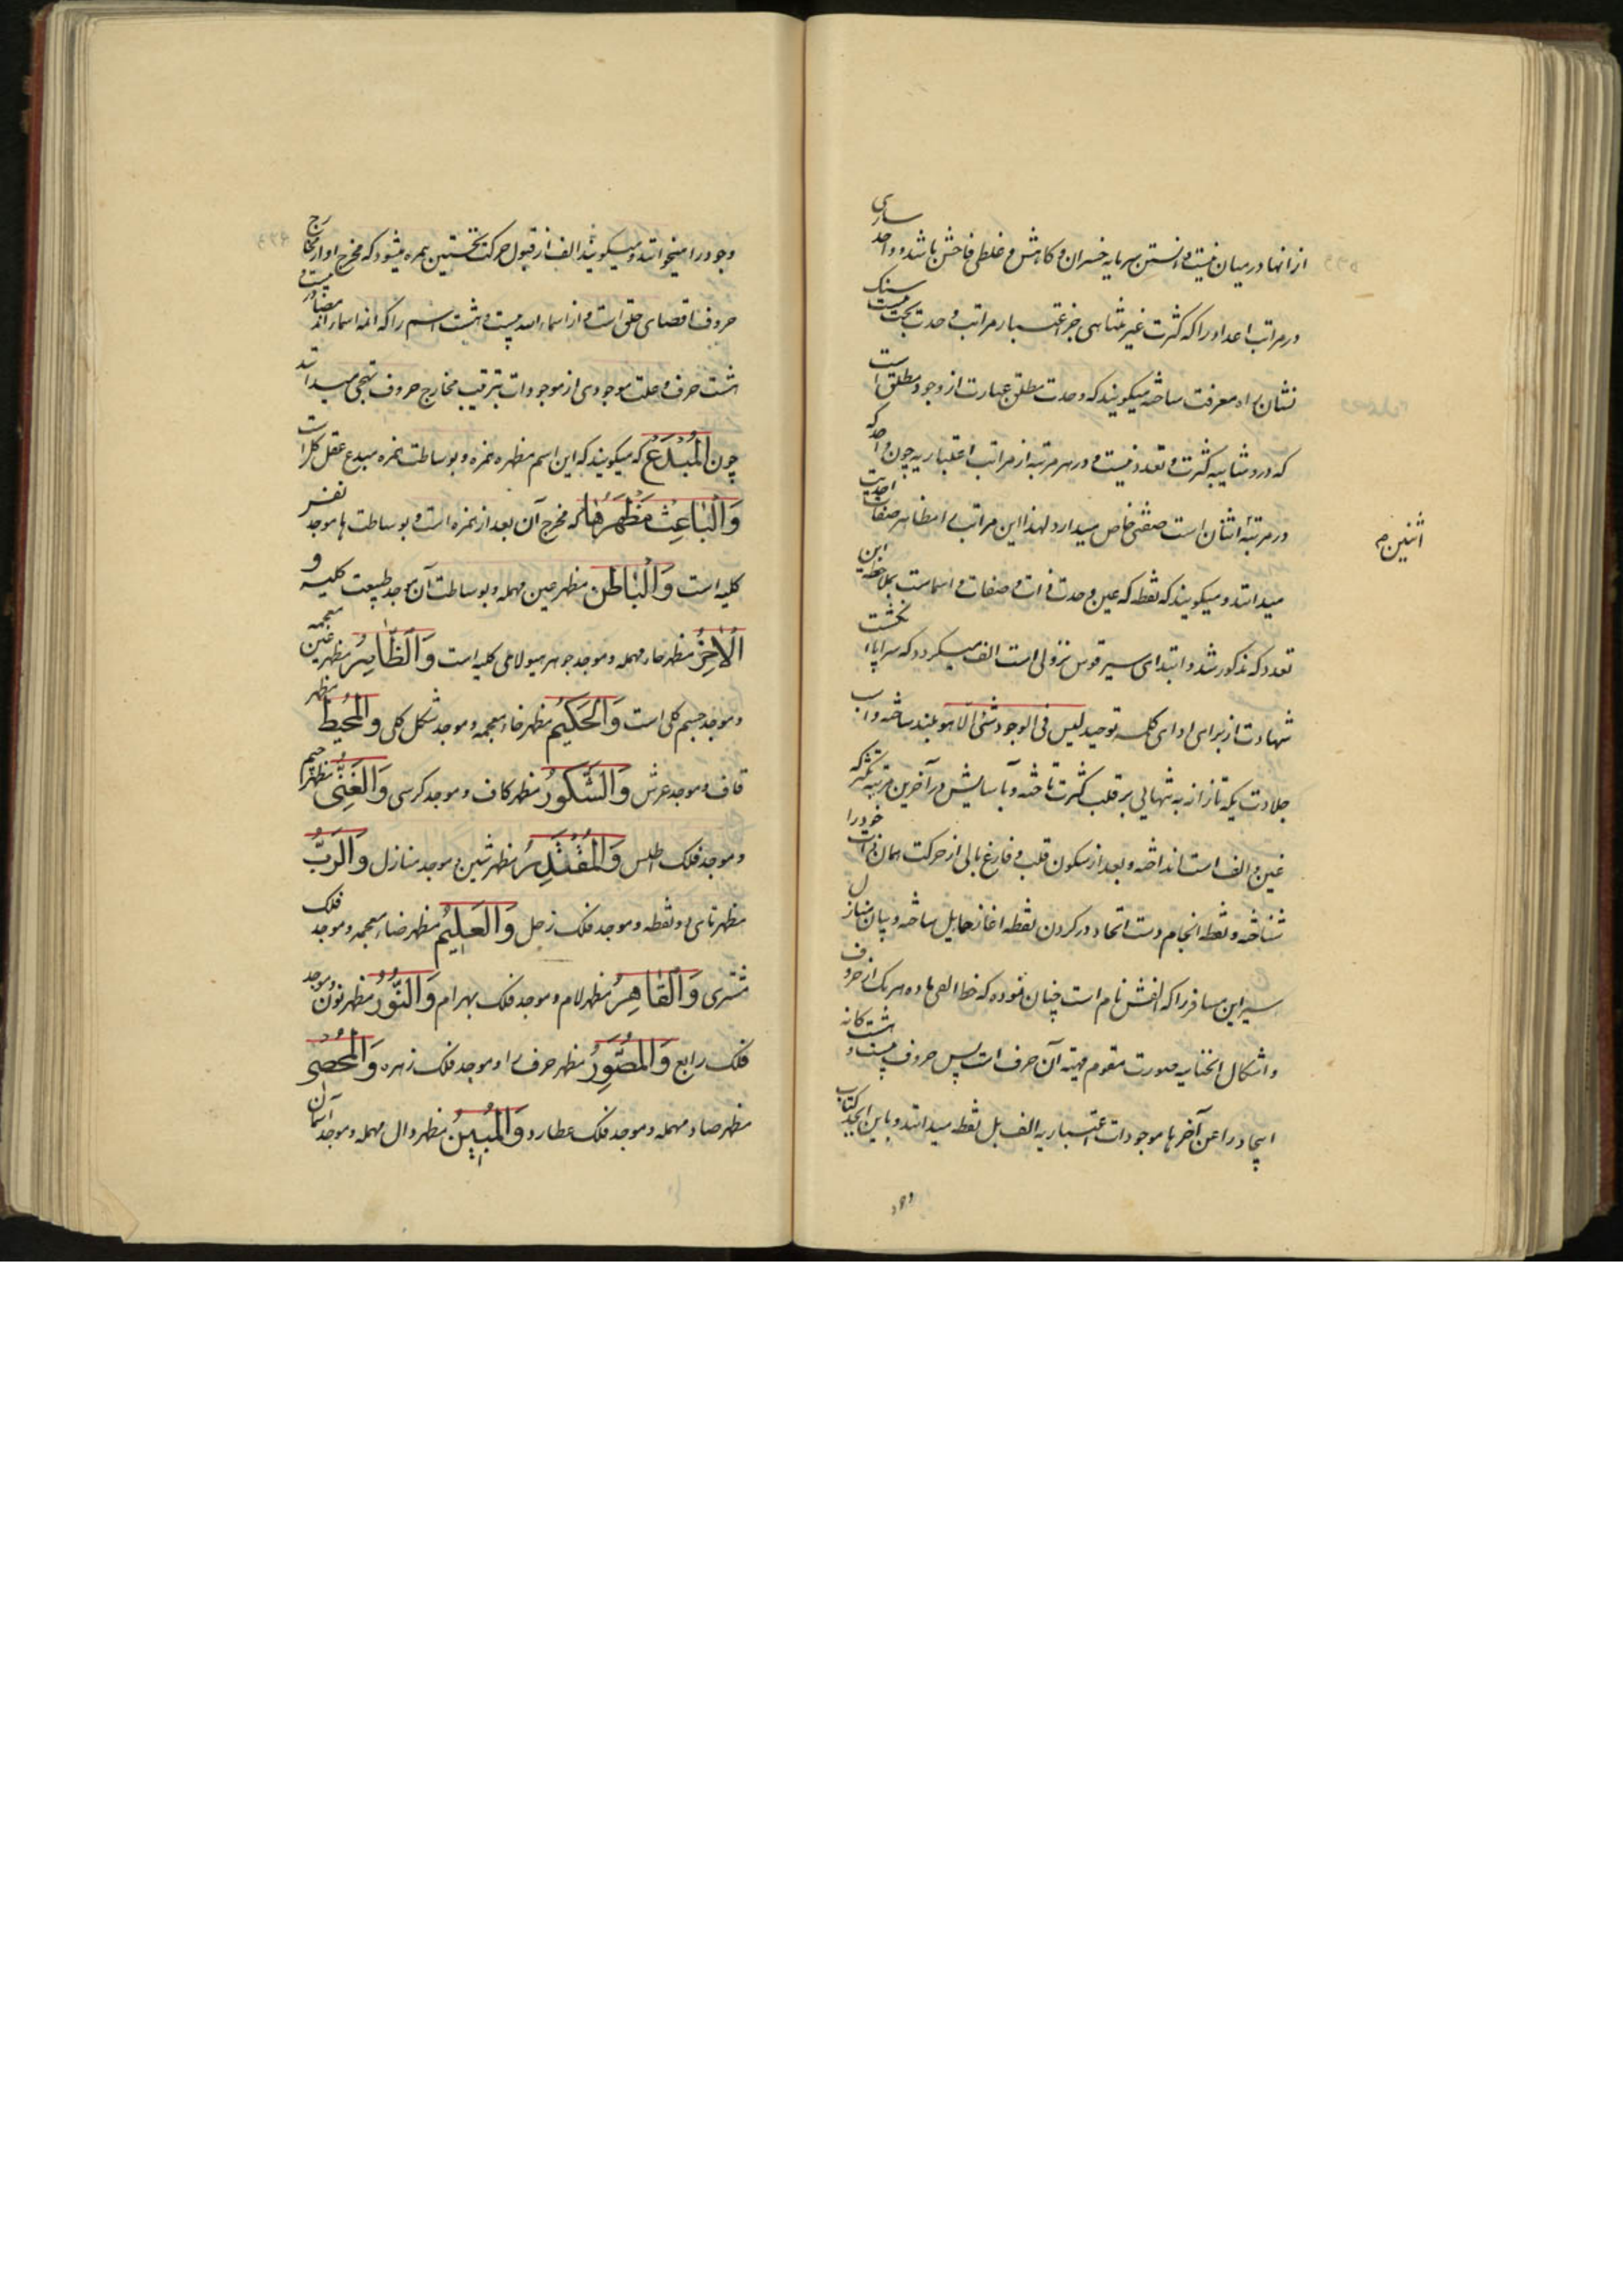 از انها در میان نیست و دانستن سرمایه خسران و کاهش و غلطی فاحش باشد و واحد ساری
در مراتب اعداد را که کثرت غیر متناهی جز اعتبار مراتب وحدت بحت نیست سنک
نشان راه معرفت ساخته میکویند که وحدت مطلق عبارت از وجود مطلق است
که در و شایبه کثرت و تعدد نیست و در هر مرتبه از مراتب اعتباریه چون واحد که
در مرتبهٔ اثنان است صفتی خاص میدارد لهذا این مراتب را مظاهر صفات احدیت
اثنین م
میدانند و میکویند که نقطه که عین وحدت ذات و صفات و اسماست بملاحظه این
تعدد که مذکور شد و ابتدای سیر قوس نزولی است الف میکردد که سراپا انکشت
شهادت از برای ادای کلمه توحید لیس فی الوجود شئی الا هو بلند ساخته و اسب
جلادت یکه تاز انه به تنهایی بر قلب کثرت تاخته و با سایش در آخرین مرتبه تکثر که
غین و الف است انداخته و بعد از سکون قلب و فارغ بالی از حرکت همان ذات خود را
شناخته و نقطه انجام دست اتحاد در کردن نقطه اغاز حمایل ساخته و بیان منازل
سیر این مسافر را که الفش نام است چنان نموده که خط الفی ماده هر یک از حروف
و اشکال انحنایه صورت مقوم مهیة آن حرف است پس حروف بیست و هشت کانه
ایجاد را عن آخرها موجودات اعتباریه الف بل نقطه میدانند و باین ابجد کتاب
وجود را میخوانند و میکویند الف از قبول حرکت نخستین همزه میشود که مخرج او از مخارج
حروف اقصای حلق است و از اسماء الله بیست و هشت اسم را که ائمه اسمااند مضاد
هشت حرف و علت موجودی از موجودات بترتیب مخارج حروف تهجی میدانند
چون اَلْمُبْدِعُ که میکویند که این اسم مظهره همزه و بوساطت همزه مبدع عقل کل است
وَالْبَاعِثُ مَظْهَرُ هَا که مخرج آن بعد از همزه است و بوساطت ها موجد نفس
کلیه است وَالْبَاطِن مظهر عین مهمله و بوساطت آن موجد طبیعت کلیه و
اَلْاٰخِرُ مظهر حاء مهمله و موجد جوهر هیولای کلیه است وَالظَّاهِرُ مظهر غین معجمه
و موجد جسم کلی است وَالْحَکِیْمُ مظهر خاء معجمه و موجد شکل کلی وَالْمُحِیْطُ مظهر
قاف و موجد عرش وَالشَّکُورُ مظهر کاف و موجد کرسی وَالْغَنِیُّ مظهر جیم
و موجد فلک اطلس وَالْمُقْتَدِرُ مظهر شین و موجد منازل وَالرَّبُّ
مظهر تای دو نقطه و موجد فلک زحل وَالْعَلِیْمُ مظهر ضاء معجمه و موجد فلک
مشتری وَالْقَاهِرُ مظهر لام و موجد فلک بهرام وَالنُّوْرُ مظهر نون و موجد
فلک رابع وَالْمُصَوِّرُ مظهر حرف را و موجد فلک زهره وَالْمُحْصِی
مظهر صاد مهمله و موجد فلک عطارد وَالْمُبِیْنُ مظهر دال مهمله و موجد آسمان